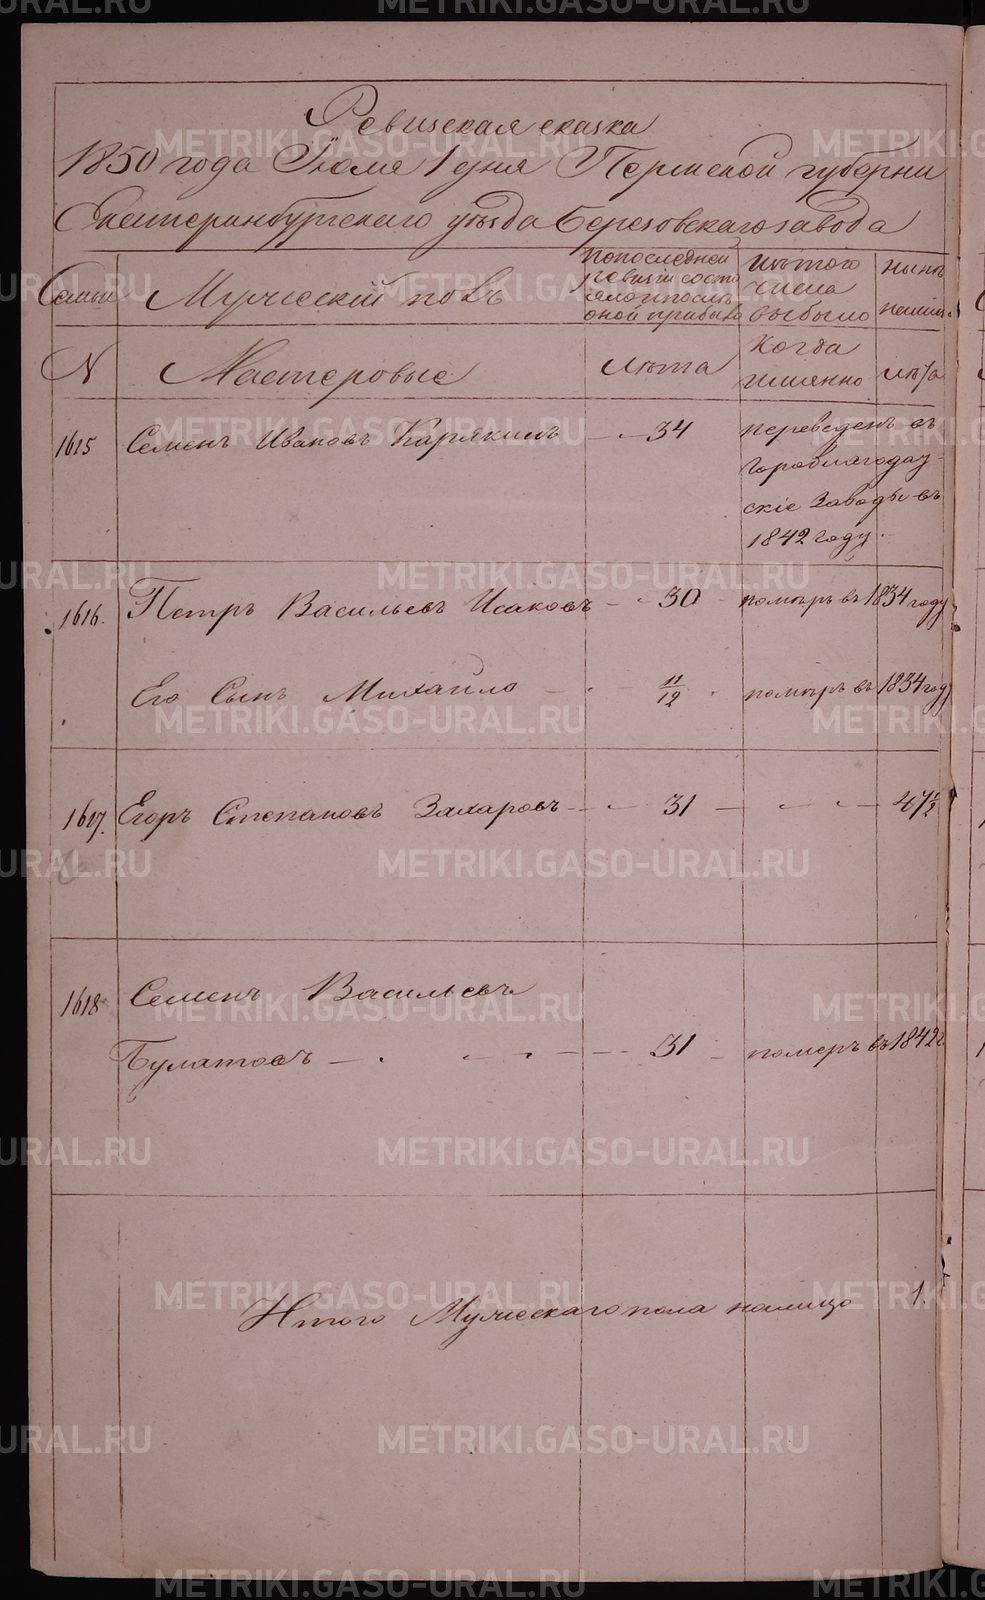 Ревизская сказка
1850 года Июля 1 дня Пермской губерни
Екатеринбургскаго уѣзда Березовскаго завода
Семьи
Мужескій полъ
по последней
ревизіи состо
яло и посль
оной прибыло
изъ того
числа
выбыло
нынѣ
налицо
N
Мастеровые
лѣта
когда
имянно
лѣта
1615 Семенъ Ивановъ Карякинъ 34 переведенъ въ
Гороблагодат-
скіе Заводы въ
1842 году.
1616. Петръ Васильевъ Исаковъ 30 помѣръ въ 1834 году
Его Сынъ Михайло 11/12 помѣръ въ 1834 году
1617. Егоръ Степановъ Захаровъ 31 47 1/2
1618 Семенъ Васильевъ
Булатовъ 31 померъ въ 1842 г
Итого Мужескаго пола налицо 1.
METRIKI.GASO-URAL.RU